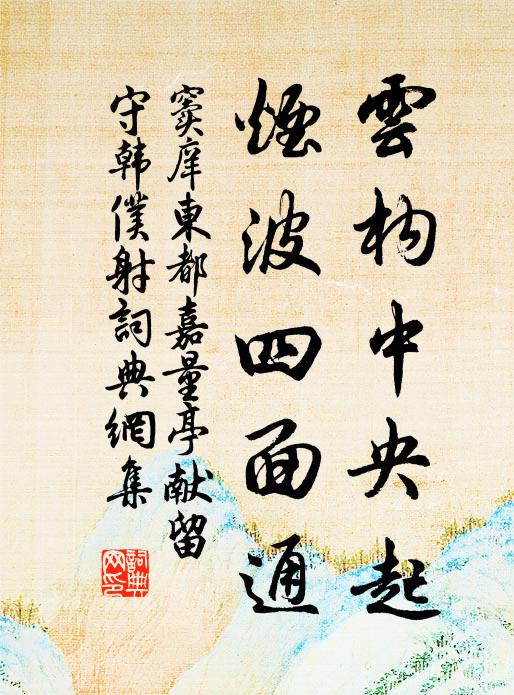 雲构中央起
煙波四面通
竇庠東都嘉量亭献留
守韩僕射詞典網集
詞典
网印